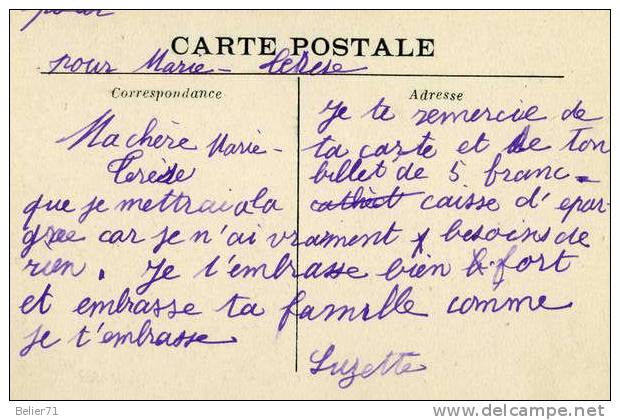 pour
CARTE POSTALE
pour Marie-Terese
Correspondance
Adresse
Ma chère Marie-
Terèse
Je te remercie de
ta carte et de ton
billet de 5 franc
que je mettrai a la caisse d'epar
gne car je n'ai vrament besoins de
rien. Je t'embrasse bien fort
et embrasse ta famille comme
je t'embrasse
Suzette
Belier71
delcampe.net